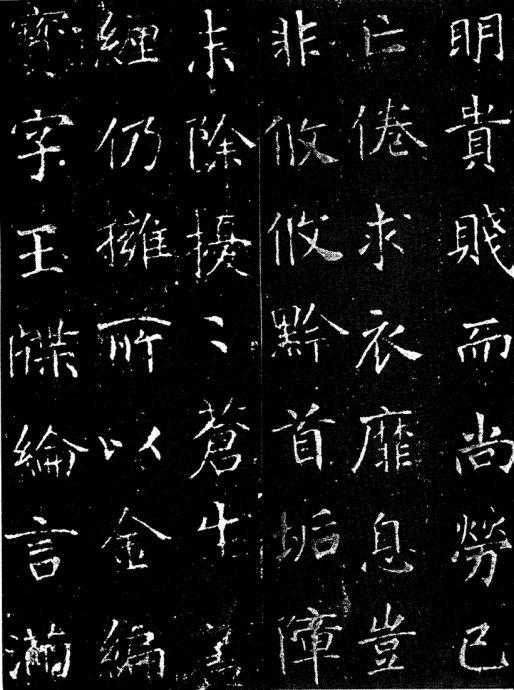 明貴賤而尚勞己
亡倦求衣靡息豈
非攸攸黔首垢障
未除擾〻蒼生蓋
纏仍擁所以金編
寶字玉牒綸言滿